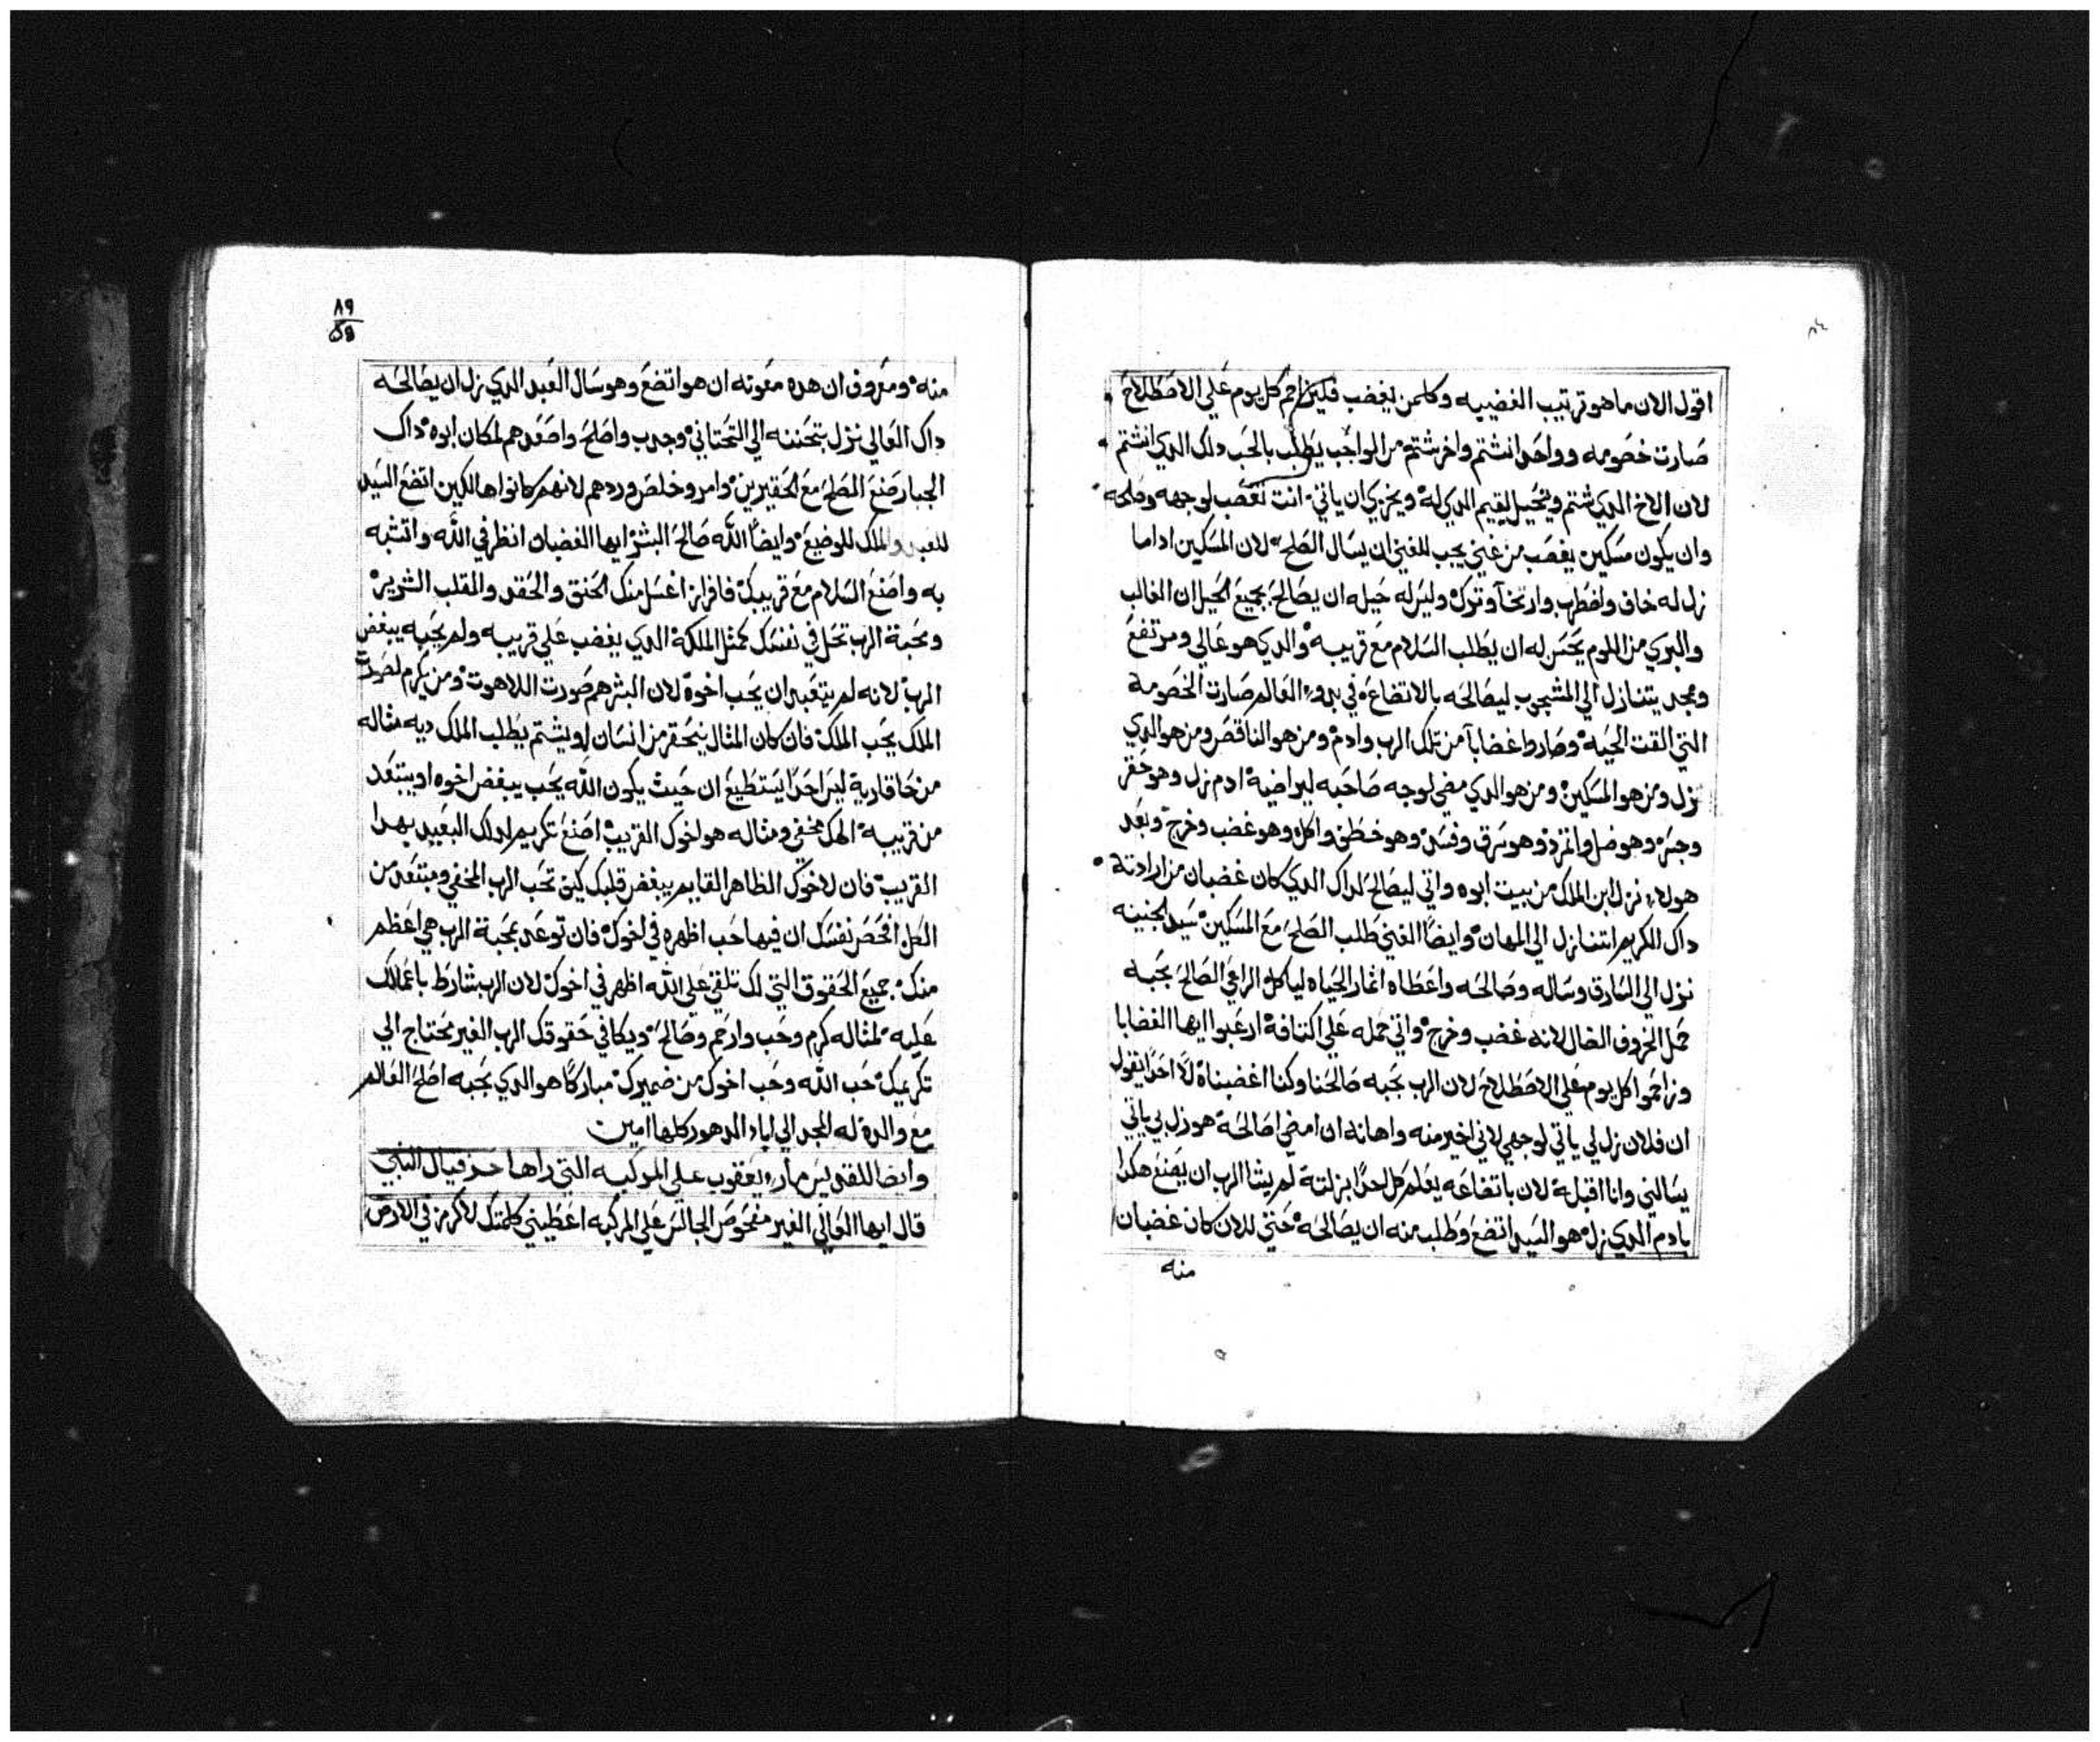 اقول الان ما هو ترتيب الغضبيه وكلمن يغضب فليتزاحم كل يوم علي الاصطلاح
صارت خصومه وواحد انشتم واخر شتم من الواجب يطلب بالحب دلك الدي انشتم
لان الاخ الدي شتم ويخيل يقيم الدي له ويخزي ان ياتي انت تغصب لوجهه وصلحه
وان يكون مسكين يغصب من غني يجب للغني ان يسال الصلح لان المسكين اداما
زل له خاف واضطرب وارتخا وترك وليس له حيله ان يصالح بجميع الحيل ان الغالب
والبري من اللوم يحسن له ان يطلب السلام مع قريبه والدي هو عالي ومرتفع
ومجد يتنازل الي المشجوب ليصالحه بالاتضاع في بدو العالم صارت الخصومة
التي القت الحيه وصاروا غضابا من تلك الرب وادم ومن هو الناقص ومن هو الدي
زل ومن هو المسكين ومن هو الدي مضي لوجه صاحبه ليراضيه ادم زل وهو حقر
وجسر وهو ضل واتمرد وهو سرق وفسد وهو خطف واكل وهو غضب وخرج وبعد
هولاء نزل ابن الملك من بيت ابوه واتي ليصالح لداك الدي كان غضبان من ارادته
داك الكريم اتنازل الي المهان وايضا الغني طلب الصلح مع المسكين سيد الجنينه
نزل الي السارق وساله وصالحه واعطاه اثمار الحياه لياكل الراعي الصالح بحبه
حمل الخروف الضال لانه غضب وخرج واتي حمله علي اكتافه ارعبوا ايها الغضابا
وزاحموا كل يوم علي الاصطلاح لان الرب بحبه صالحنا وكنا اغضبناه لا احدا يقول
ان فلان زل لي ياتي لوجهي لاني اخير منه واهانه ان امضي اصالحه هو زل بي ياتي
يسالني وانا اقبله لان باتضاعه يعلم كل احدا بزلته لم يشا الرب ان يصنع هكدا
بادم الدي زل هو السيد اتضع وطلب منه ان يصالحه حتي للان كان غضبان
منه
٨٩
منه ومعروف ان هده معونه ان هو اتضع وهو سال العبد الدي زل ان يصالحه
داك العالي نزل بتحننه الي التحتاني وجدب واصلح واصعدهم لمكان ابوه داك
الجبار صنع الصلح مع الحقيرين وامر وخلص وردهم لانهم كانوا هالكين اتضع السيد
للعبد والملك للوضيع وايضا الله صالح البشر ايها الغضبان انظر في الله واتشبه
به واصنع السلام مع قريبك فافراز اغسل منك الحنق والحقد والقلب الشرير
ومحبة الرب تحل في نفسك كمثل الملكة الدي يغضب علي قريبه ولم يحبه يبغض
الرب لانه لم يتعبد ان يحب اخوه لان البشر هم صورت اللاهوت ومن يكرم لصورت
الملك يحب الملك فان كان المثال ينحقر من انسان او يشتم يطلب الملك ديه مثاله
من حاقاريه ليس احدا يستطيع ان حيث يكون الله يحب يبغض اخوه او يبتعد
من قريبه الهك مخفي ومثاله هو اخوك القريب اصنع تكريم لدلك البعيد بهدا
القريب فان لاخوك الظاهر القايم يبغض قلبك كيف تحب الرب المخفي ومبتعد من
الكل افحص نفسك ان فيها حب اظهره في اخوك فان توعد بمحبة الرب هي اعظم
منك جميع الحقوق التي لك تلقي علي الله اظهر في اخوك لان الرب شارط باعمالك
عليه لمثاله كرم وحب وارحم وصالح ويكافي حقوقك الرب الغير محتاج الي
تكريمك حب الله وحب اخوك من ضميرك مباركا هو الدي بحبه اصلح العالم
مع والده له المجد الي اباد الدهور كلها امين
وايضا للقديس مار يعقوب علي المركبه التي راها حزقيال النبي
قال ايها العالي الغير مفحوص الجالس علي المركبه اعطيني كلمتك لاكرمز في الارض